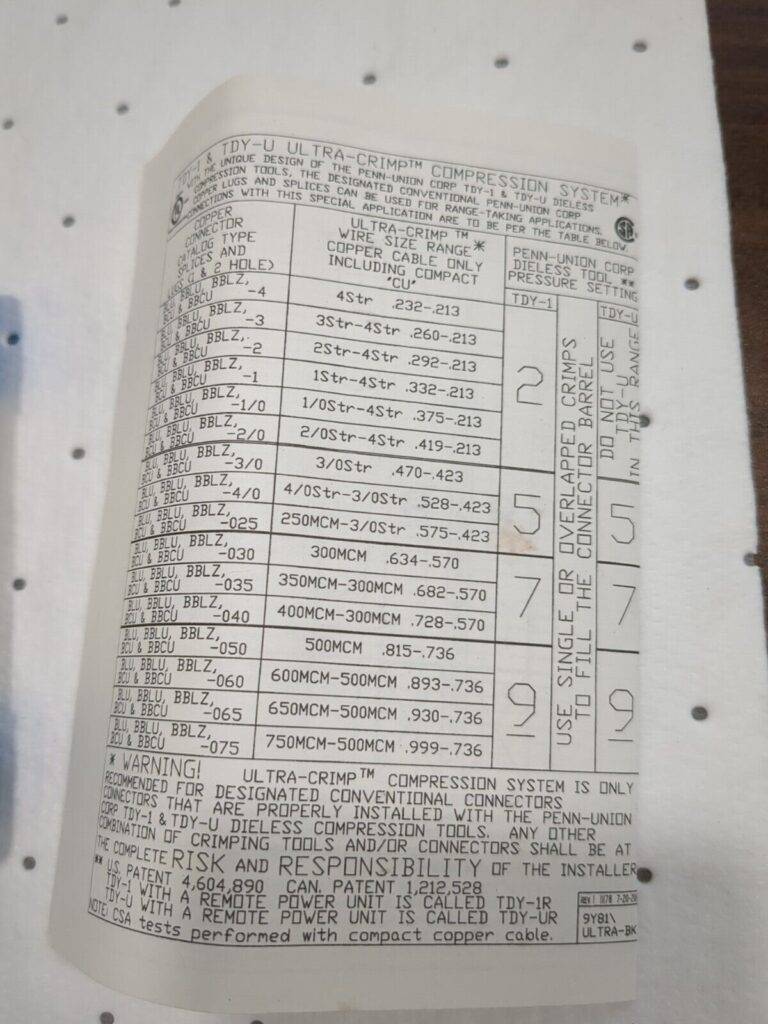 TDY-1 & TDY-U ULTRA-CRIMP™ COMPRESSION SYSTEM*
WITH THE UNIQUE DESIGN OF THE PENN-UNION CORP TDY-1 & TDY-U DIELESS
COMPRESSION TOOLS, THE DESIGNATED CONVENTIONAL PENN-UNION CORP
COPPER LUGS AND SPLICES CAN BE USED FOR RANGE-TAKING APPLICATIONS.
CONNECTIONS WITH THIS SPECIAL APPLICATION ARE TO BE PER THE TABLE BELOW.
COPPER
CONNECTOR
CATALOG TYPE
SPLICES AND
LUGS (1 & 2 HOLE)
ULTRA-CRIMP™
WIRE SIZE RANGE*
COPPER CABLE ONLY
INCLUDING COMPACT
"CU"
PENN-UNION CORP
DIELESS TOOL **
PRESSURE SETTING
TDY-1
TDY-U
BLU, BBLU, BBLZ,
BCU & BBCU -4
4Str .232-.213
BLU, BBLU, BBLZ,
BCU & BBCU -3
3Str-4Str .260-.213
BLU, BBLU, BBLZ,
BCU & BBCU -2
2Str-4Str .292-.213
BLU, BBLU, BBLZ,
BCU & BBCU -1
1Str-4Str .332-.213
BLU, BBLU, BBLZ,
BCU & BBCU -1/0
1/0Str-4Str .375-.213
BLU, BBLU, BBLZ,
BCU & BBCU -2/0
2/0Str-4Str .419-.213
2
DO NOT USE
TDY-U
IN THIS RANGE
BLU, BBLU, BBLZ,
BCU & BBCU -3/0
3/0Str .470-.423
BLU, BBLU, BBLZ,
BCU & BBCU -4/0
4/0Str-3/0Str .528-.423
BLU, BBLU, BBLZ,
BCU & BBCU -025
250MCM-3/0Str .575-.423
5
5
BLU, BBLU, BBLZ,
BCU & BBCU -030
300MCM .634-.570
BLU, BBLU, BBLZ,
BCU & BBCU -035
350MCM-300MCM .682-.570
BLU, BBLU, BBLZ,
BCU & BBCU -040
400MCM-300MCM .728-.570
7
7
BLU, BBLU, BBLZ,
BCU & BBCU -050
500MCM .815-.736
BLU, BBLU, BBLZ,
BCU & BBCU -060
600MCM-500MCM .893-.736
BLU, BBLU, BBLZ,
BCU & BBCU -065
650MCM-500MCM .930-.736
BLU, BBLU, BBLZ,
BCU & BBCU -075
750MCM-500MCM .999-.736
9
9
USE SINGLE OR OVERLAPPED CRIMPS
TO FILL THE CONNECTOR BARREL
* WARNING! ULTRA-CRIMP™ COMPRESSION SYSTEM IS ONLY
RECOMMENDED FOR DESIGNATED CONVENTIONAL CONNECTORS
CONNECTORS THAT ARE PROPERLY INSTALLED WITH THE PENN-UNION
CORP TDY-1 & TDY-U DIELESS COMPRESSION TOOLS. ANY OTHER
COMBINATION OF CRIMPING TOOLS AND/OR CONNECTORS SHALL BE AT
THE COMPLETE RISK AND RESPONSIBILITY OF THE INSTALLER
** U.S. PATENT 4,604,890 CAN. PATENT 1,212,528
TDY-1 WITH A REMOTE POWER UNIT IS CALLED TDY-1R
TDY-U WITH A REMOTE POWER UNIT IS CALLED TDY-UR
NOTE: CSA tests performed with compact copper cable.
9Y81\
ULTRA-BK